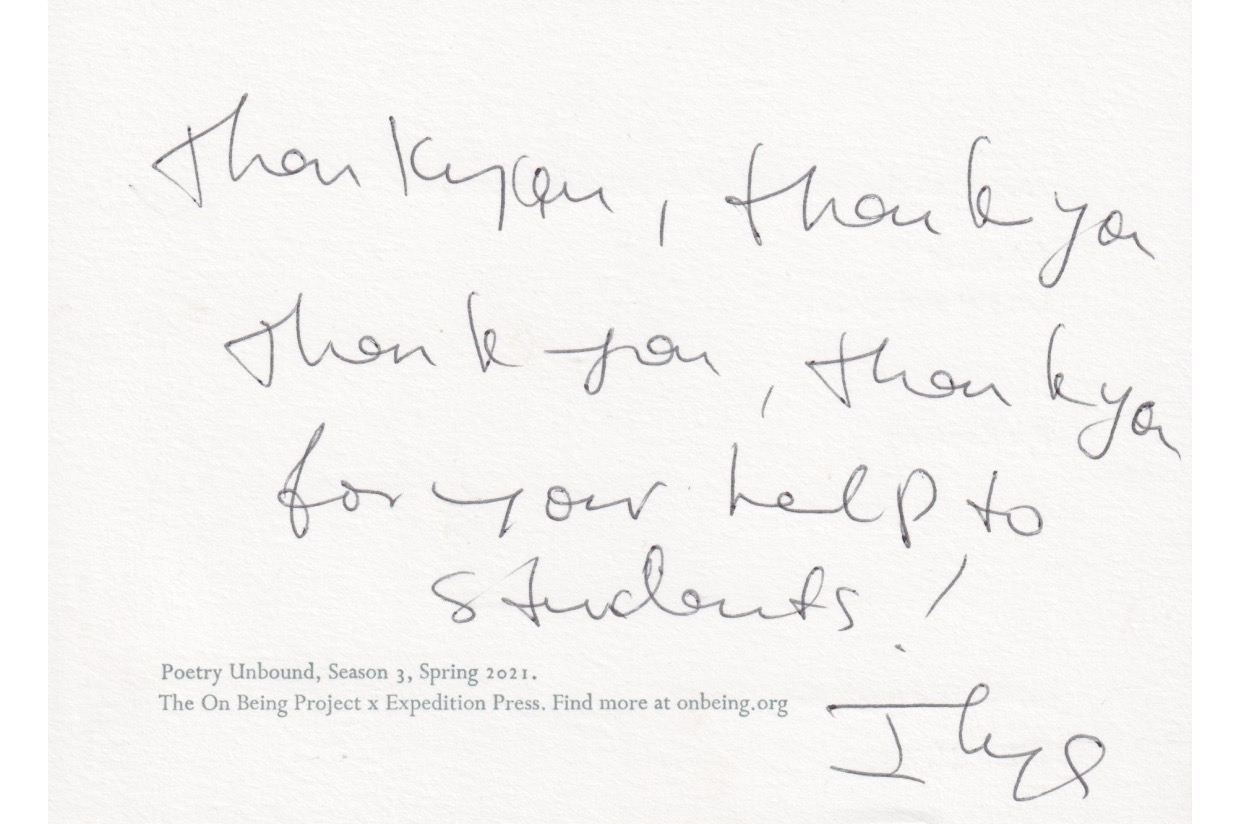 thank you, thank you
thank you, thank you
for your help to
students!
Poetry Unbound, Season 3, Spring 2021.
The On Being Project x Expedition Press. Find more at onbeing.org
Ilya